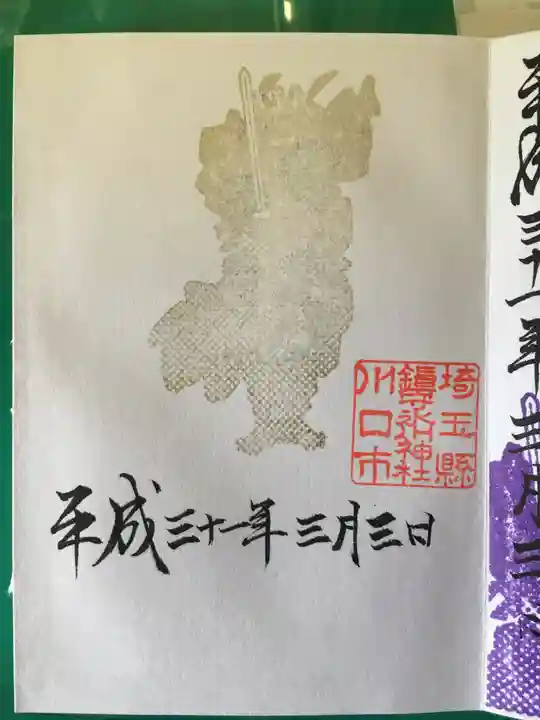 埼玉縣
鎮守氷川神社
川口市
平成三十一年 三月三日
平成三十一年三月三